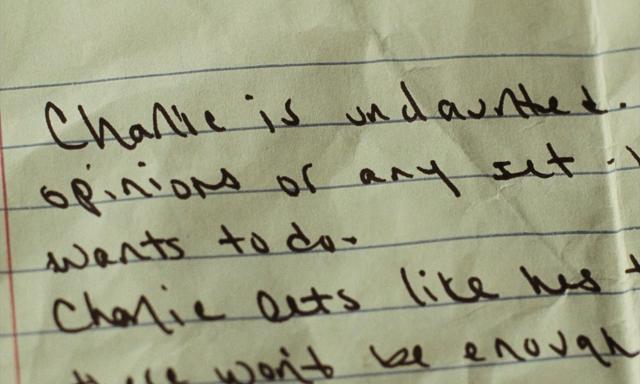 Charlie is undaunted.
opinions or any set
wants to do.
Charlie acts like hes
there won't be enough